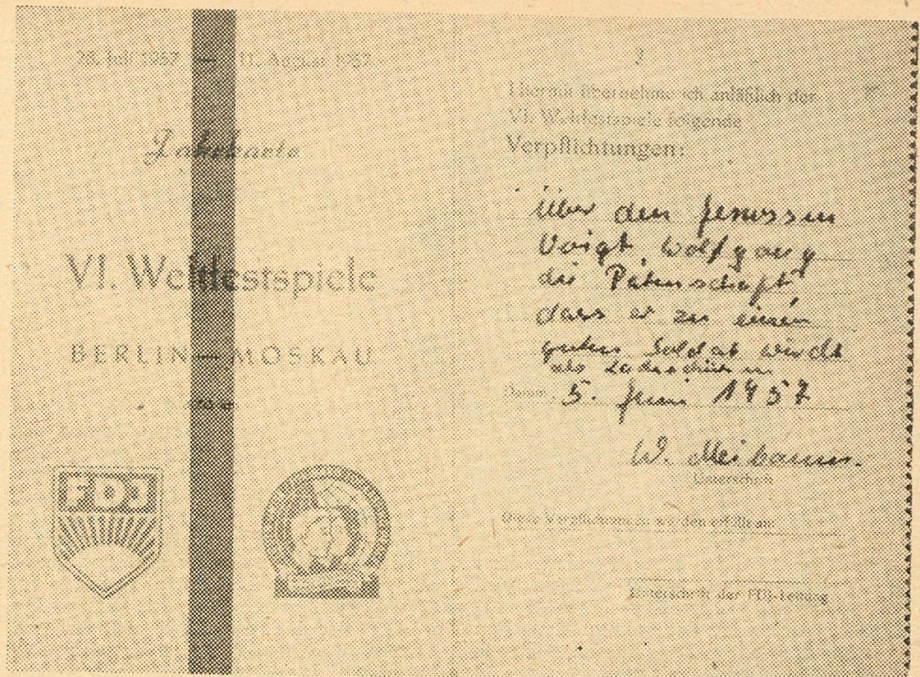 28. Juli 1957 — 11. August 1957
Fahrkarte
VI. Weltfestspiele
BERLIN — MOSKAU
FDJ
3
Hiermit übernehme ich anläßlich der
VI. Weltfestspiele folgende
Verpflichtungen:
über den Genossen
Voigt Wolfgang
die Patenschaft
dass er zu einen
guten Soldat wird
als Ladeschütze
Datum: 5. Juni 1957
W. Meibaum
Unterschrift
Diese Verpflichtungen wurden erfüllt am:
Unterschrift der FDJ-Leitung